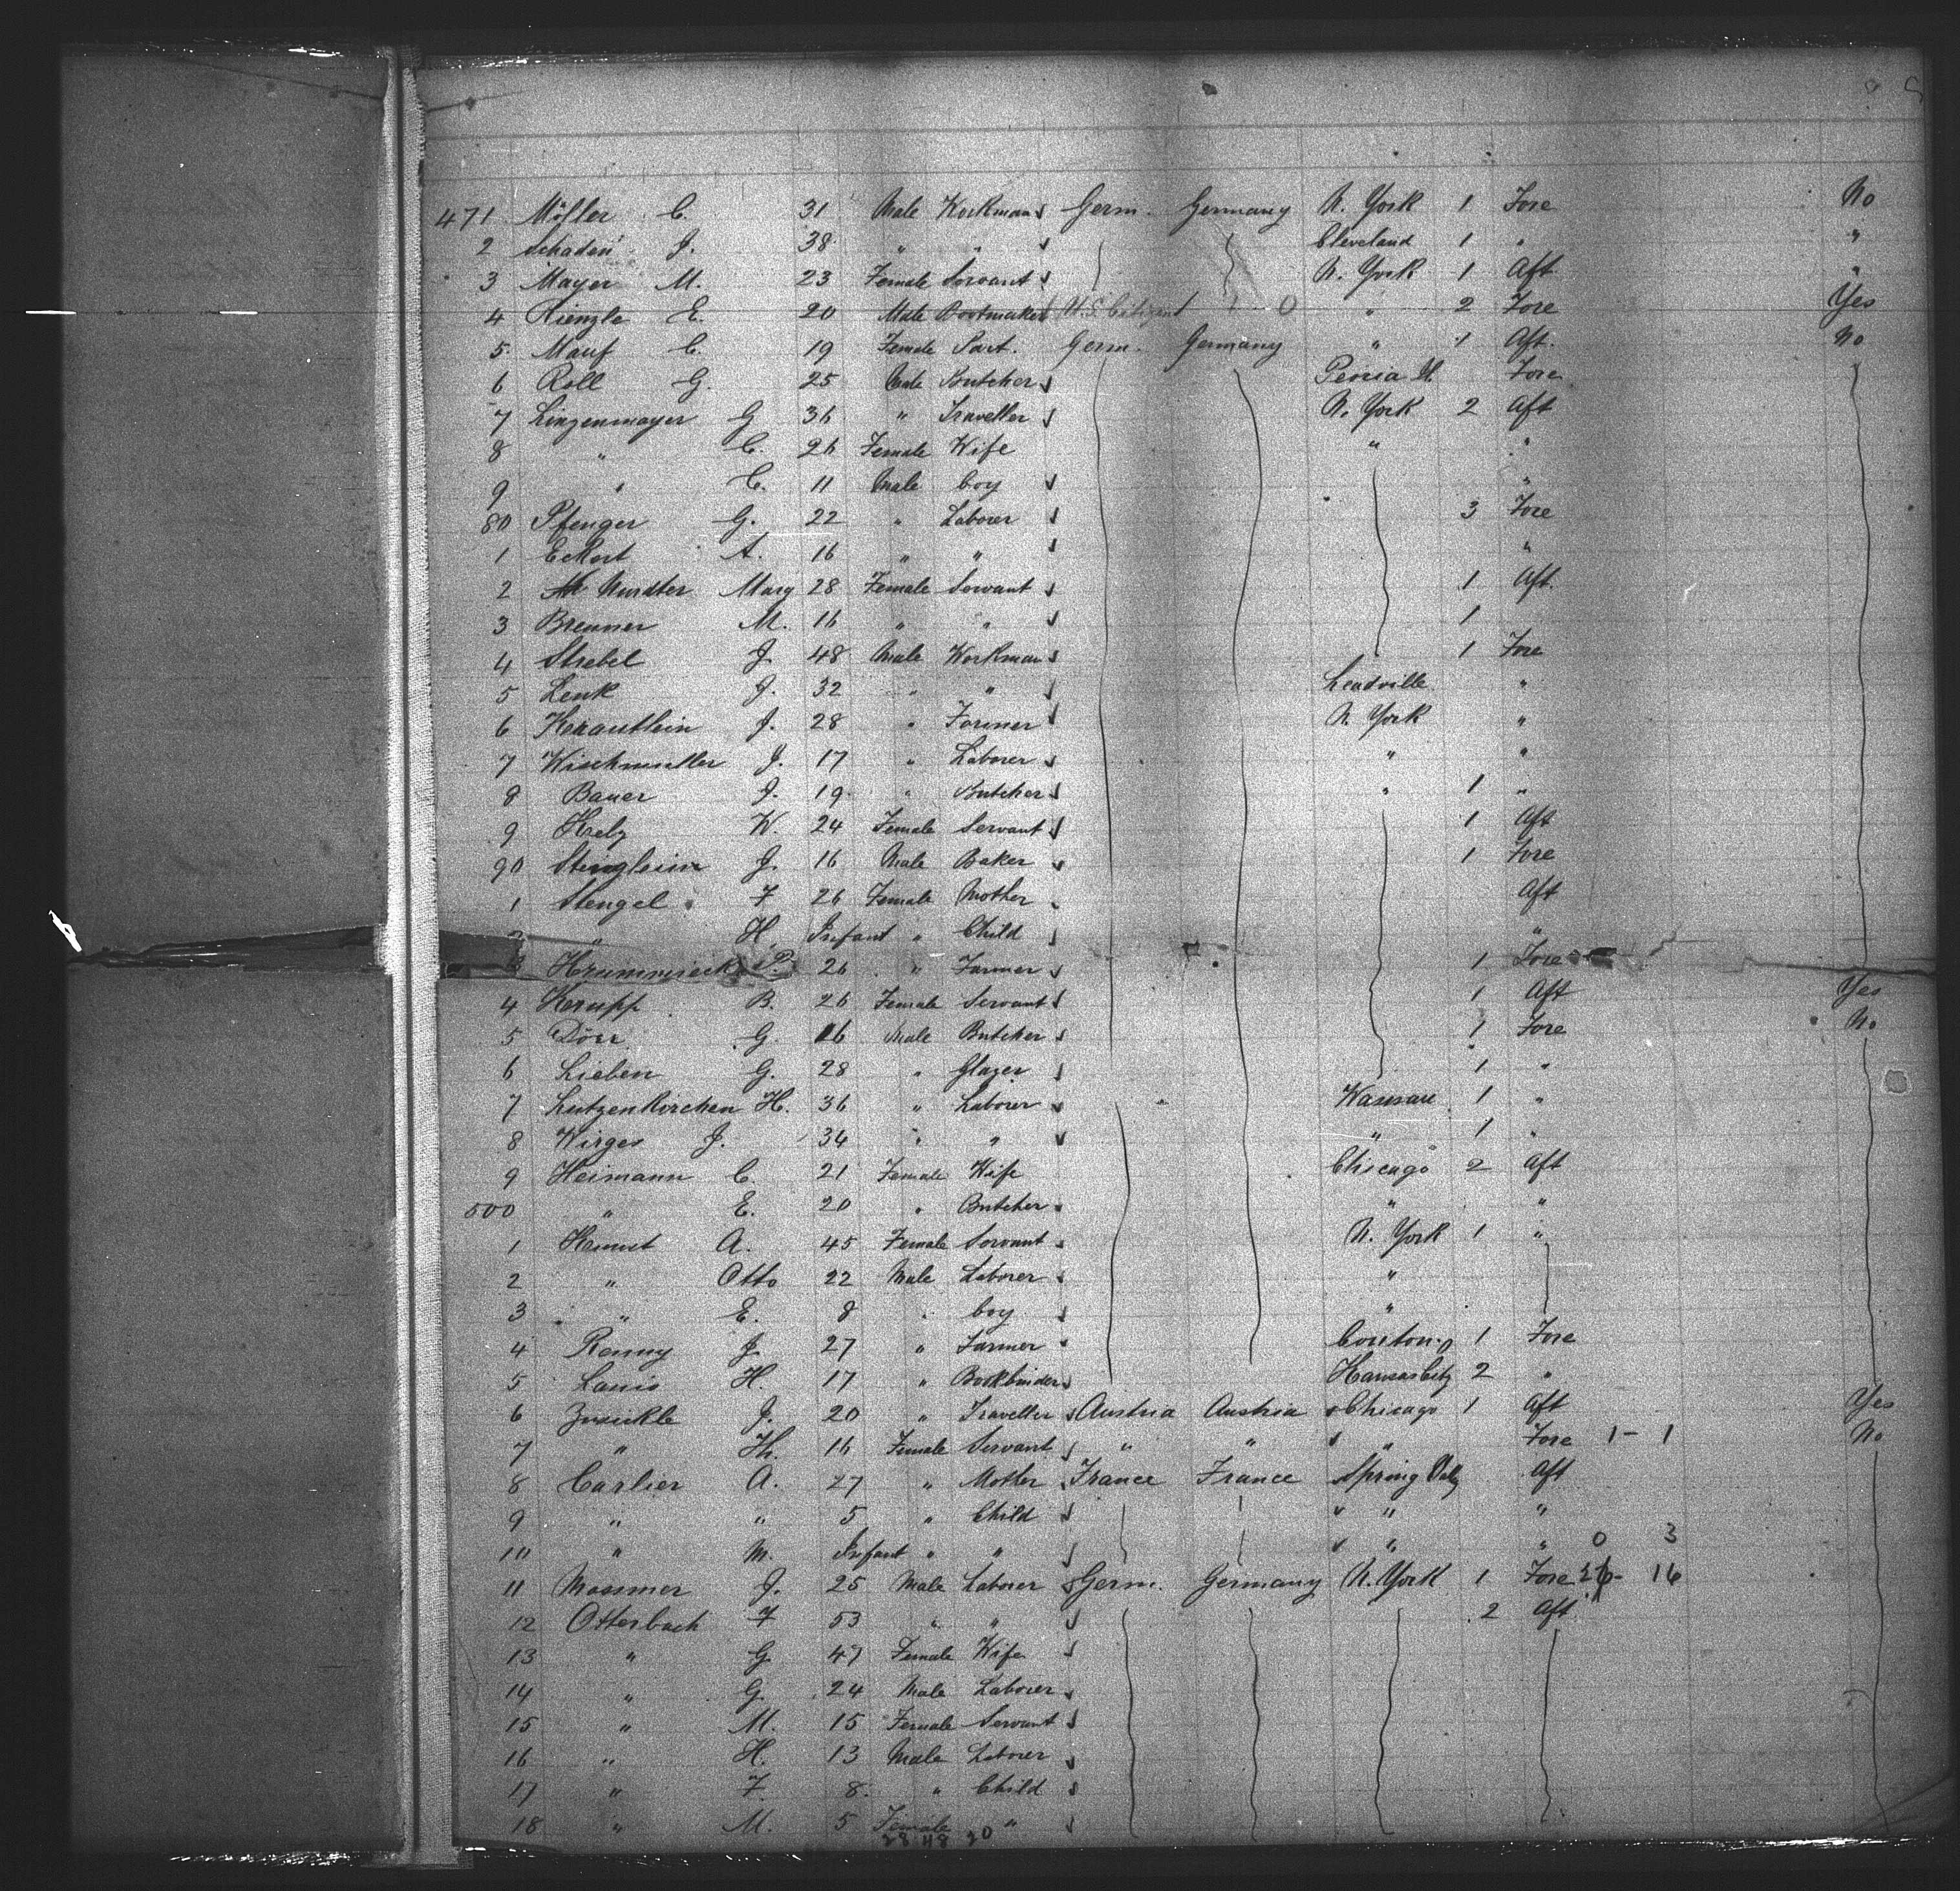 471 Mösler C. 31 Male Workman Germ. Germany N. York 1 Fore No
2 Schaden J. 38 " " Cleveland 1 " "
3 Mayer M. 23 Female Servant N. York 1 Aft "
4 Kienzle E. 20 Male Bootmaker U.S. Citizen " 2 Fore Yes
5 Mauf C. 19 Female Germ. Germany " 1 Aft. No
6 Roll G. 25 Male Butcher Peoria Fore
7 Linzenmayer G 36 " Traveller N. York 2 Aft
8 " C. 26 Female Wife " "
9 " C. 11 Male boy "
80 Pfenger G. 22 " Laborer 3 Fore
1 Eckert A. 16 " " "
2 Mundter Mary 28 Female Servant 1 Aft.
3 Brenner M. 16 " " 1
4 Strebel J. 48 Male Workman 1 Fore
5 Lenk J. 32 " " Leadville "
6 J. 28 " Farmer N. York "
7 Wischmuller J. 17 " Laborer " "
8 Bauer J. 19 " Butcher " 1 "
9 W. 24 Female Servant 1 Aft
90 Stenglein J. 16 Male Baker 1 Fore
1 Stengel F 26 Female Mother Aft
2 " H. Infant " Child "
3 P. 26 " Farmer 1 Fore
4 Krupp B. 26 Female Servant 1 Aft Yes
5 Dörr G. 16 Male Butcher 1 Fore No
6 Lieben G. 28 " Glazer 1 "
7 Lutzenkirchen H. 36 " Laborer 1 "
8 Wirges J. 34 " " " 1 "
9 Heimann C. 21 Female Wife Chicago 2 Aft
500 " E. 20 " Butcher " "
1 A. 45 Female Servant N. York 1 "
2 " Otto 22 Male Laborer "
3 " E. 8 " boy "
4 Remmy J. 27 " Farmer 1 Fore
5 H. 17 " Bookbinder Kansas City 2 "
6 J. 20 " Traveller Austria Austria Chicago 1 Aft Yes
7 " Th. 16 Female Servant " " " Fore 1 - 1 No
8 Carlier A. 27 " Mother France France Spring Aft
9 " " 5 " Child " "
10 " M. Infant " " " " 0 3
11 Massmer J. 25 Male Laborer Germ. Germany N. York 1 Fore 16
12 Otterbach F 53 " " 2 Aft
13 " G 47 Female Wife
14 " G. 24 Male Laborer
15 " M. 15 Female Servant
16 " H. 13 Male Laborer
17 " F. 8 " Child
18 " M. 5 Female "
28 48 20